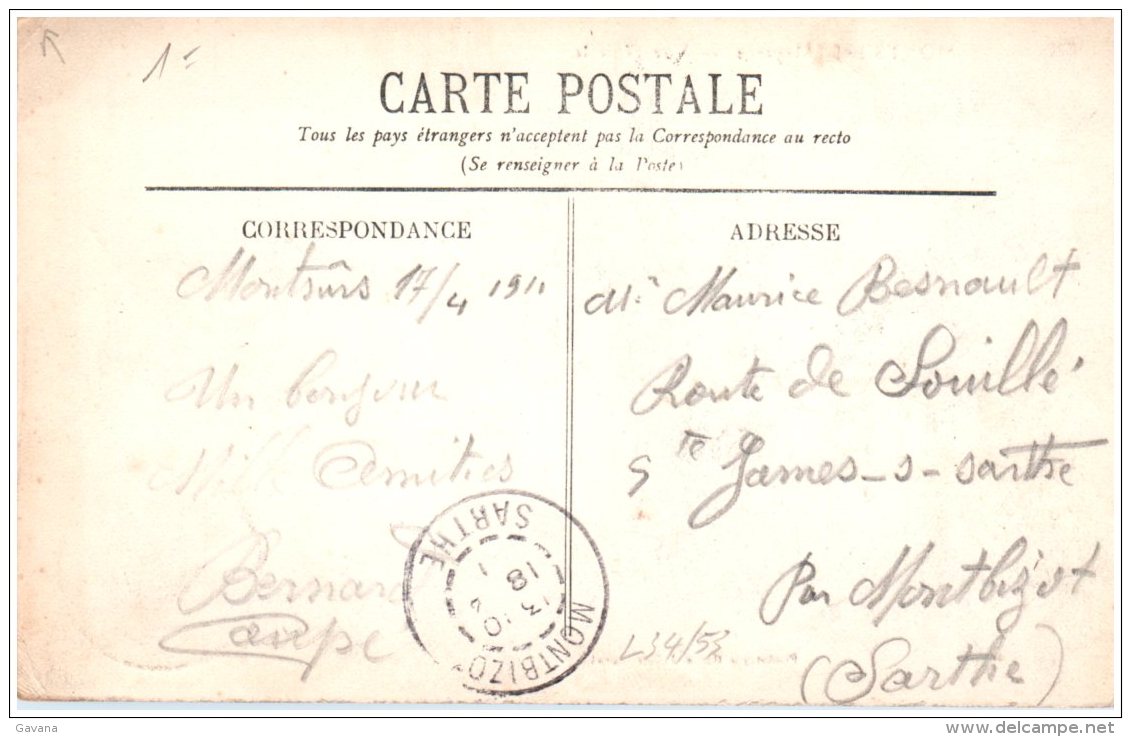 1=
CARTE POSTALE
Tous les pays étrangers n'acceptent pas la Correspondance au recto
(Se renseigner à la Poste)
CORRESPONDANCE
Montsûrs 17/4 1911
Un bonjour
Mille Amitiés
Bernard
ADRESSE
Mr Maurice Besnault
Route de Souillé
Ste James-s-sarthe
Par Montbizot
(Sarthe)
L34/53
MONTBIZOT
SARTHE
18
Gavana
www.delcampe.net